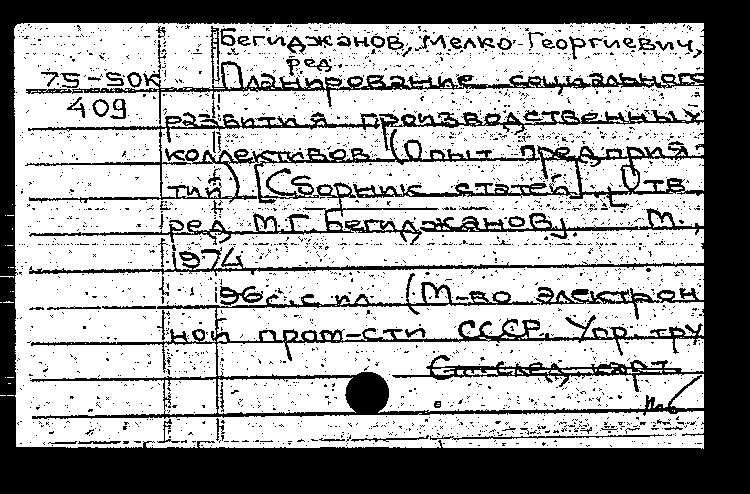 Бегиджанов, Мелко Георгиевич,
ред.
75-50К Планирование социального
409
развития производственных
коллективов (Опыт предприя-
тий) [Сборник статей]. [Отв.
ред. М.Г. Бегиджанов]. М.,
1974
96с. с ил. (М-во электрон
ной пром-сти СССР. Упр. тру
См. след. карт.